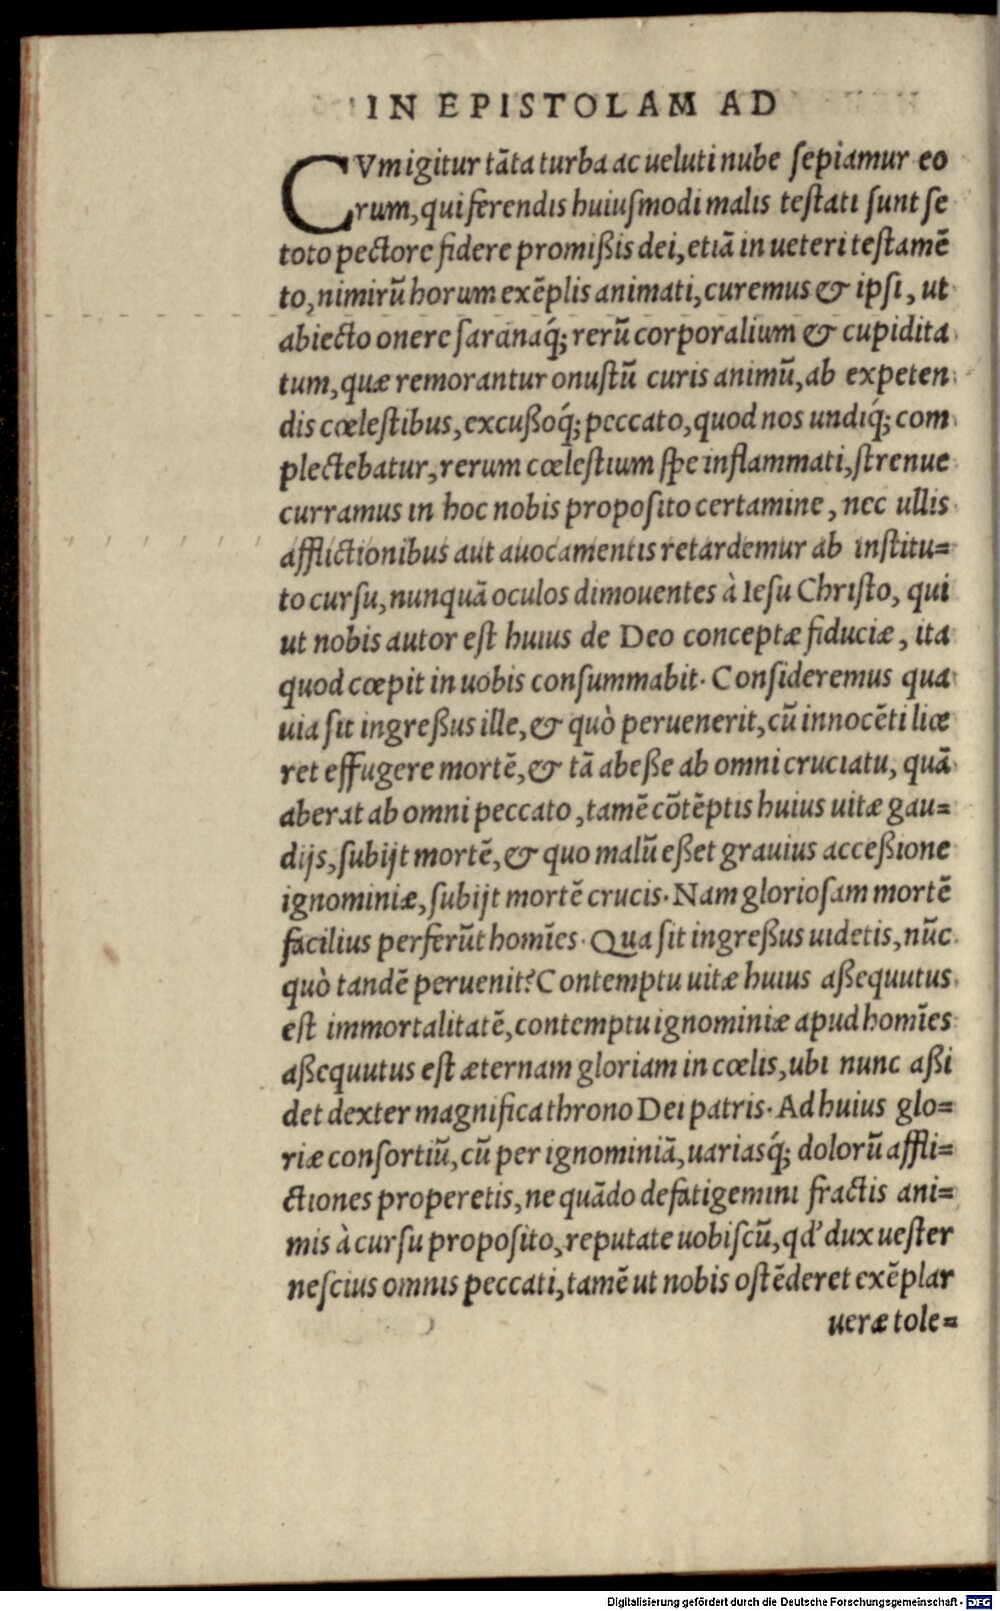 IN EPISTOLAM AD
CVm igitur tāta turba ac ueluti nube sepiamur eo
rum, qui ferendis huiusmodi malis testati sunt se
toto pectore fidere promißis dei, etiā in ueteri testamē
to, nimirū horum exēplis animati, curemus & ipsi, ut
abiecto onere sarcinaq́; rerū corporalium & cupidita
tum, quæ remorantur onustū curis animū, ab expeten
dis cœlestibus, excußoq́; peccato, quod nos undiq́; com
plectebatur, rerum cœlestium spe inflammati, strenue
curramus in hoc nobis proposito certamine, nec ullis
afflictionibus aut auocamentis retardemur ab institu=
to cursu, nunquā oculos dimouentes à Iesu Christo, qui
ut nobis autor est huius de Deo conceptæ fiduciæ, ita
quod cœpit in uobis consummabit. Consideremus qua
uia sit ingreßus ille, & quò peruenerit, cū innocēti lice
ret effugere mortē, & tā abeße ab omni cruciatu, quā
aberat ab omni peccato, tamē cōtēptis huius uitæ gau=
dijs, subijt mortē, & quo malū eßet grauius acceßione
ignominiæ, subijt mortē crucis. Nam gloriosam mortē
facilius perferūt homīes. Qua sit ingreßus uidetis, nūc
quò tandē peruenit? Contemptu uitæ huius aßequutus
est immortalitatē, contemptu ignominiæ apud homīes
aßequutus est æternam gloriam in cœlis, ubi nunc aßi
det dexter magnifica throno Dei patris. Ad huius glo=
riæ consortiū, cū per ignominiā, uariasq́; dolorū affli=
ctiones properetis, ne quādo defatigemini fractis ani=
mis à cursu proposito, reputate uobiscū, qđ dux uester
nescius omnis peccati, tamē ut nobis ostēderet exēplar
ueræ tole=
Digitalisierung gefördert durch die Deutsche Forschungsgemeinschaft - DFG